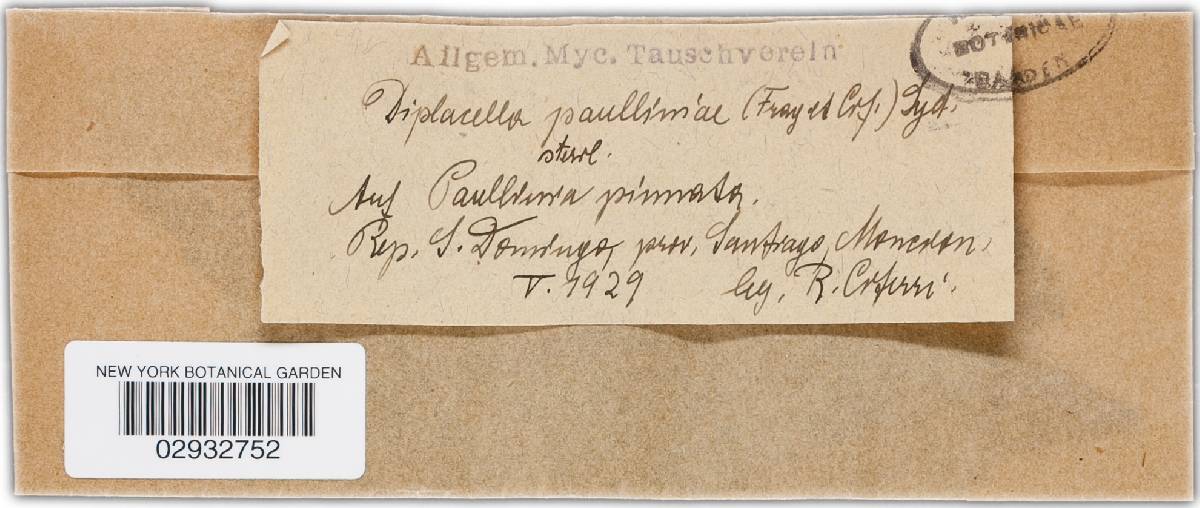 Allgem. Myc. Tauschverein
BOTANICAL
GARDEN
Diplacella paulliniae (Frag et Cif.) Syd.
steril.
Auf Paullinia pinnata.
Rep. S. Domingo, prov. Santiago, Moncion.
V. 1929 leg. R. Ciferri.
NEW YORK BOTANICAL GARDEN
02932752